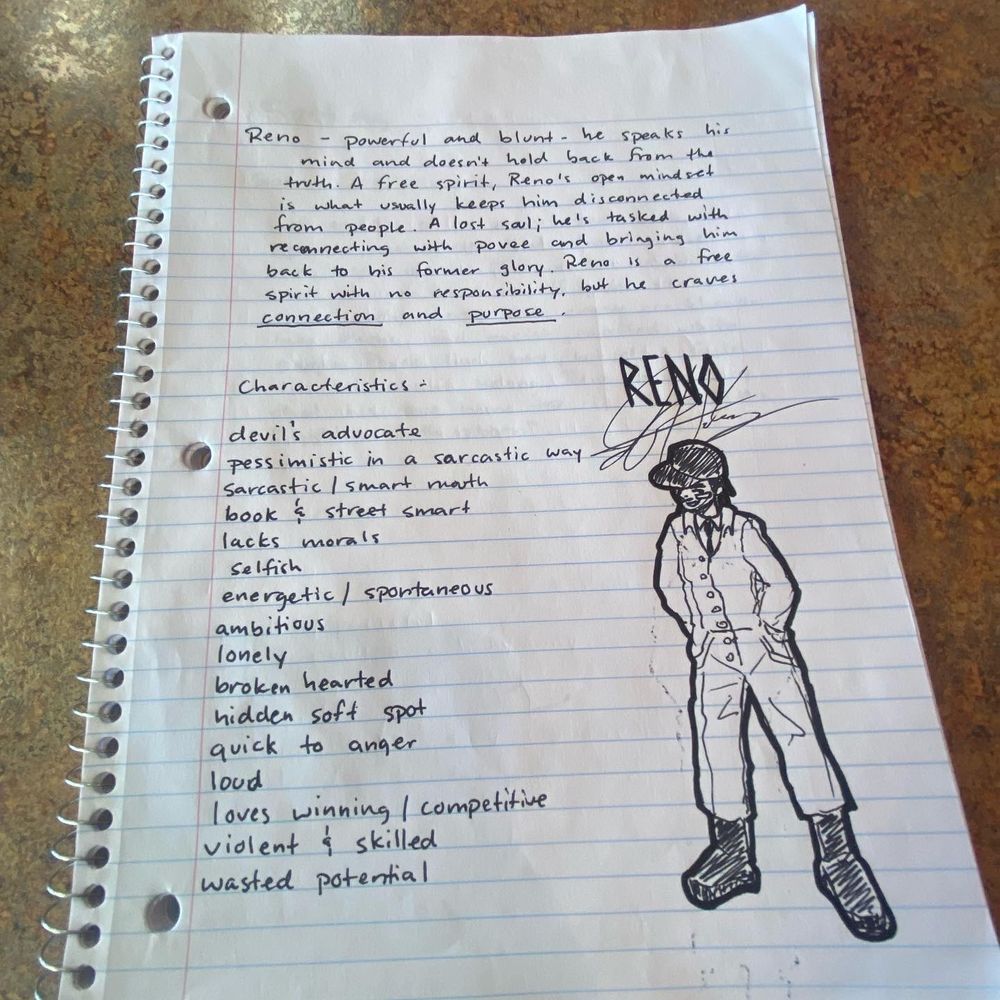 Reno - powerful and blunt - he speaks his
mind and doesn't hold back from the
truth. A free spirit, Reno's open mindset
is what usually keeps him disconnected
from people. A lost soul; he's tasked with
reconnecting with povee and bringing him
back to his former glory. Reno is a free
spirit with no responsibility, but he craves
connection and purpose.
Characteristics:
RENO
devil's advocate
pessimistic in a sarcastic way
sarcastic / smart mouth
book & street smart
lacks morals
selfish
energetic / spontaneous
ambitious
lonely
broken hearted
hidden soft spot
quick to anger
loud
loves winning / competitive
violent & skilled
wasted potential